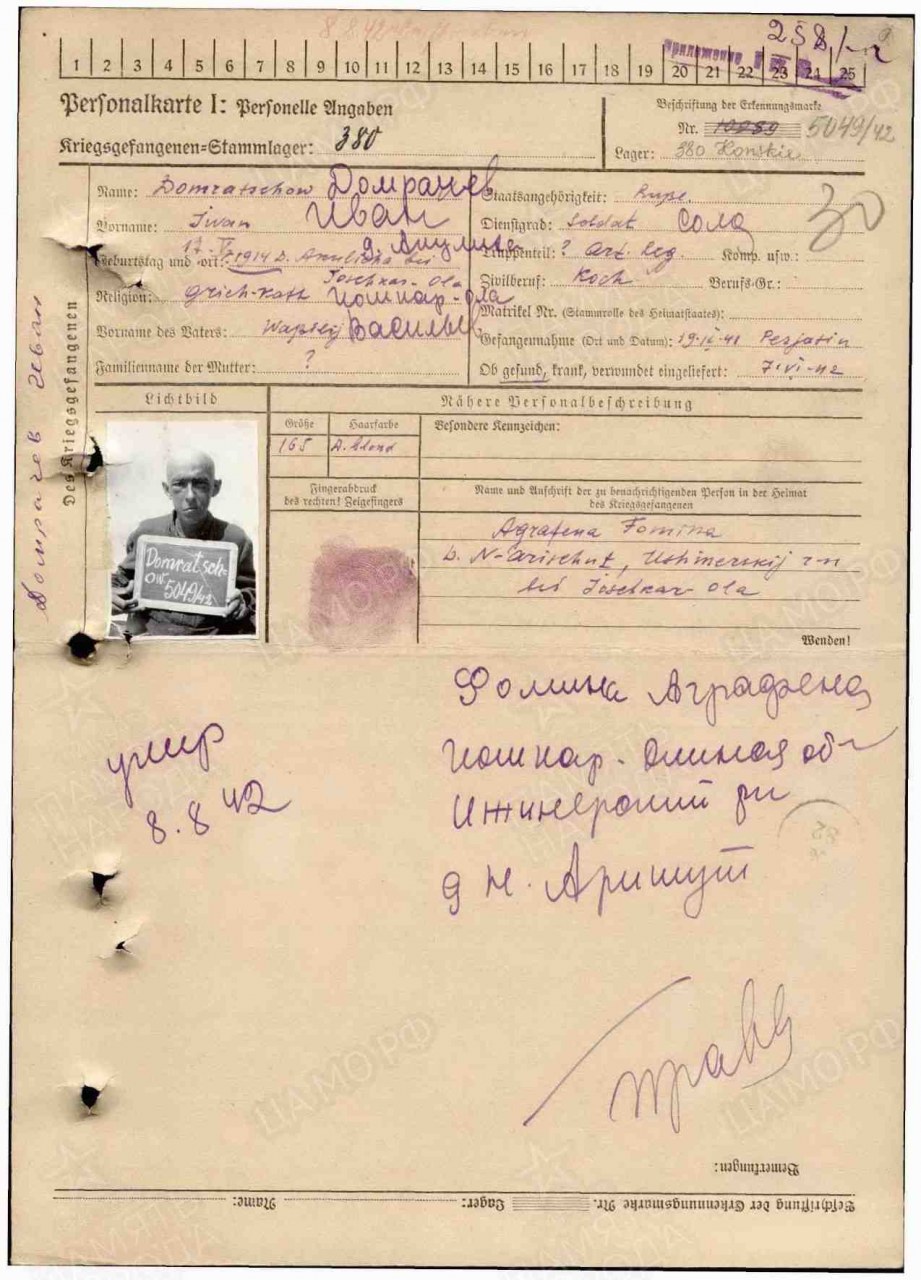 8.8.42
258
приложение
1 2 3 4 5 6 7 8 9 10 11 12 13 14 15 16 17 18 19 20 21 22 23 24 25
Personalkarte I: Personelle Angaben
Kriegsgefangenen-Stammlager: 380
Beschriftung der Erkennungsmarke
Nr. 5049/42
Lager: 380 Konskie
30
Des Kriegsgefangenen
Домрачев Иван
Name: Domratschow Домрачев
Vorname: Iwan Иван
Geburtstag und -ort: 1914 D. bei
д. Акулина
Joschkar-Ola
Religion: Griech-Kath Иошкар-ола
Vorname des Vaters: Василье
Familienname der Mutter: ?
Staatsangehörigkeit: Russe
Dienstgrad: Soldat Солд
Truppenteil: ? Art. Reg. Komp. usw.:
Zivilberuf: Koch Berufs-Gr.:
Matrikel Nr. (Stammrolle des Heimatstaates):
Gefangennahme (Ort und Datum): 19.IX.41 Perjatin
Ob gesund, krank, verwundet eingeliefert: 7.VI.42
Lichtbild
Nähere Personalbeschreibung
Größe Haarfarbe Besondere Kennzeichen:
165 d. blond
Fingerabdruck
des rechten! Zeigefingers
Name und Anschrift der zu benachrichtigenden Person in der Heimat
des Kriegsgefangenen
Agrafena Fomina
D. N-Arischut, Ushinerskij rn
bei Joschkar Ola
Domratsch-
ow
5049/42
Wenden!
Фомина Аграфена
Иошкар-Олинская об-
Ижинерский рн
д Н. Аришут
умер
8.8 42
Bemerkungen:
Beschriftung der Erkennungsmarke Nr. Lager: Name:
ЦАМО РФ